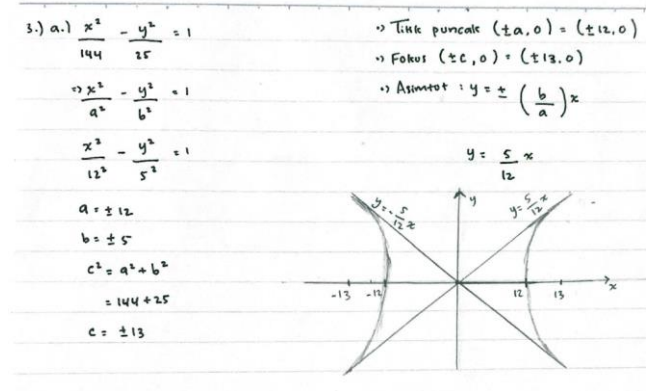 3.) a.) x²/144 - y²/25 = 1
=> x²/a² - y²/b² = 1
x²/12² - y²/5² = 1
a = ± 12
b = ± 5
c² = a² + b²
= 144 + 25
c = ± 13
•) Titik puncak (±a, 0) = (±12, 0)
•) Fokus (±c, 0) = (±13, 0)
•) Asimtot : y = ± (b/a) x
y = 5/12 x
y = -5/12 x
y
y = 5/12 x
-13 -12 12 13 x